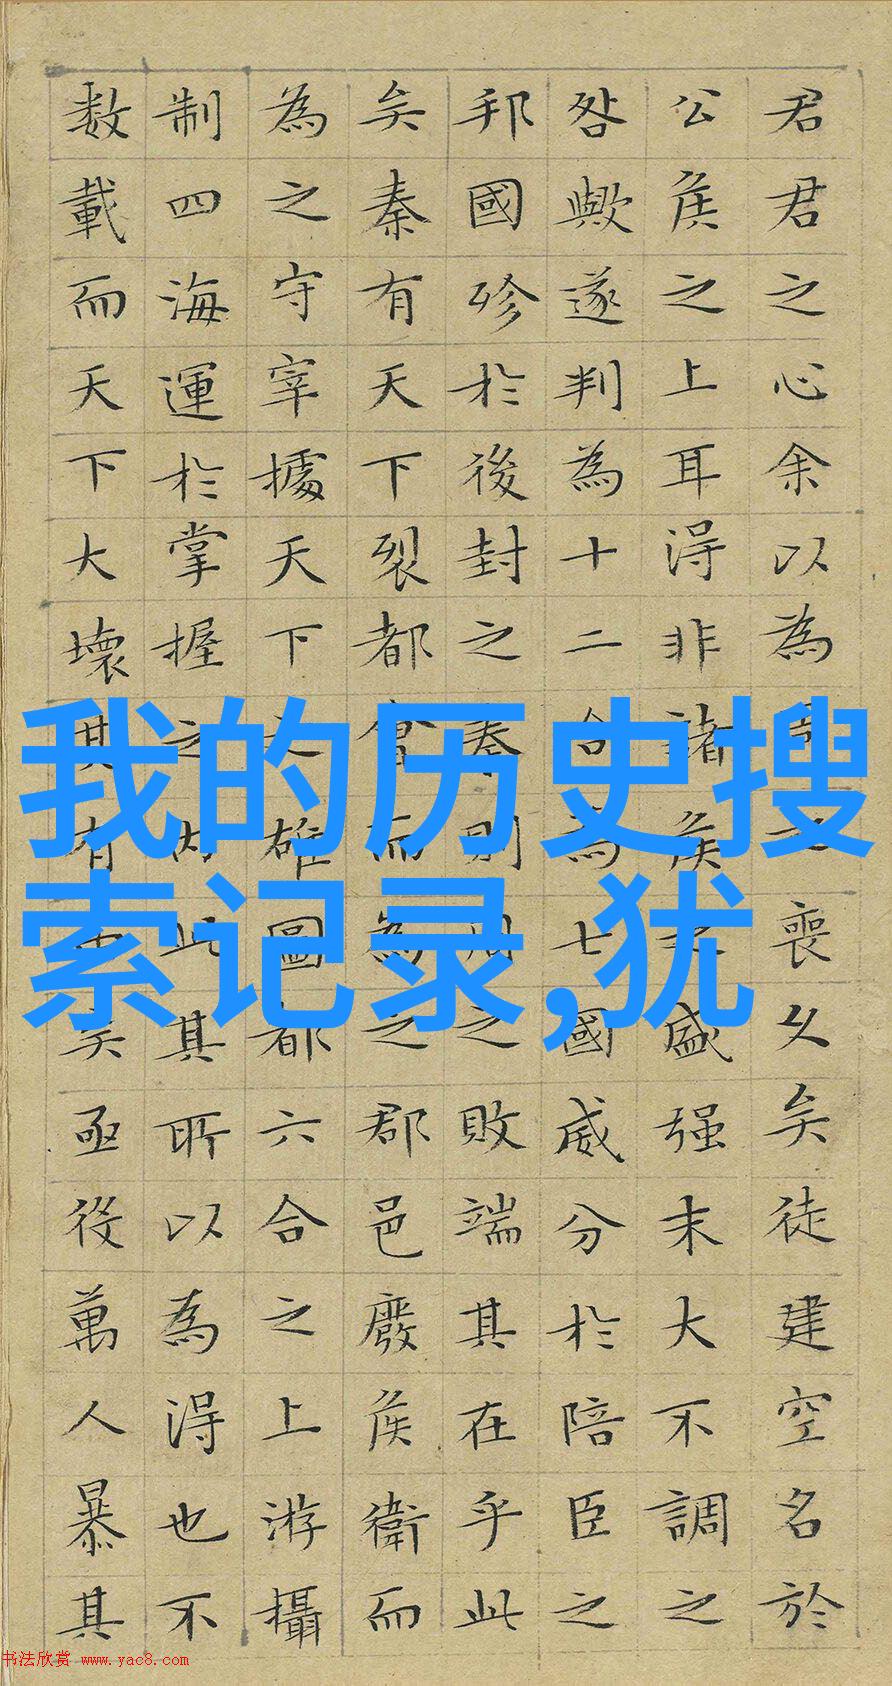 君君之心余以為之喪久矣徒建空名於
公侯之上耳得非諸侯之盛强末大不調之
咎歟遂判為十二合為七國威分於陪臣之
邦國殄於後封之秦則周之敗端其在乎此
矣秦有天下裂都會而為之郡邑廢侯衛而
為之守宰據天下之雄圖都六合之上游攝
制四海運於掌握之内此其所以為得也不
数載而天下大壞其有由矣亟役萬人暴其
我的历史搜
索记录,犹
书法欣赏 www.yac8.com